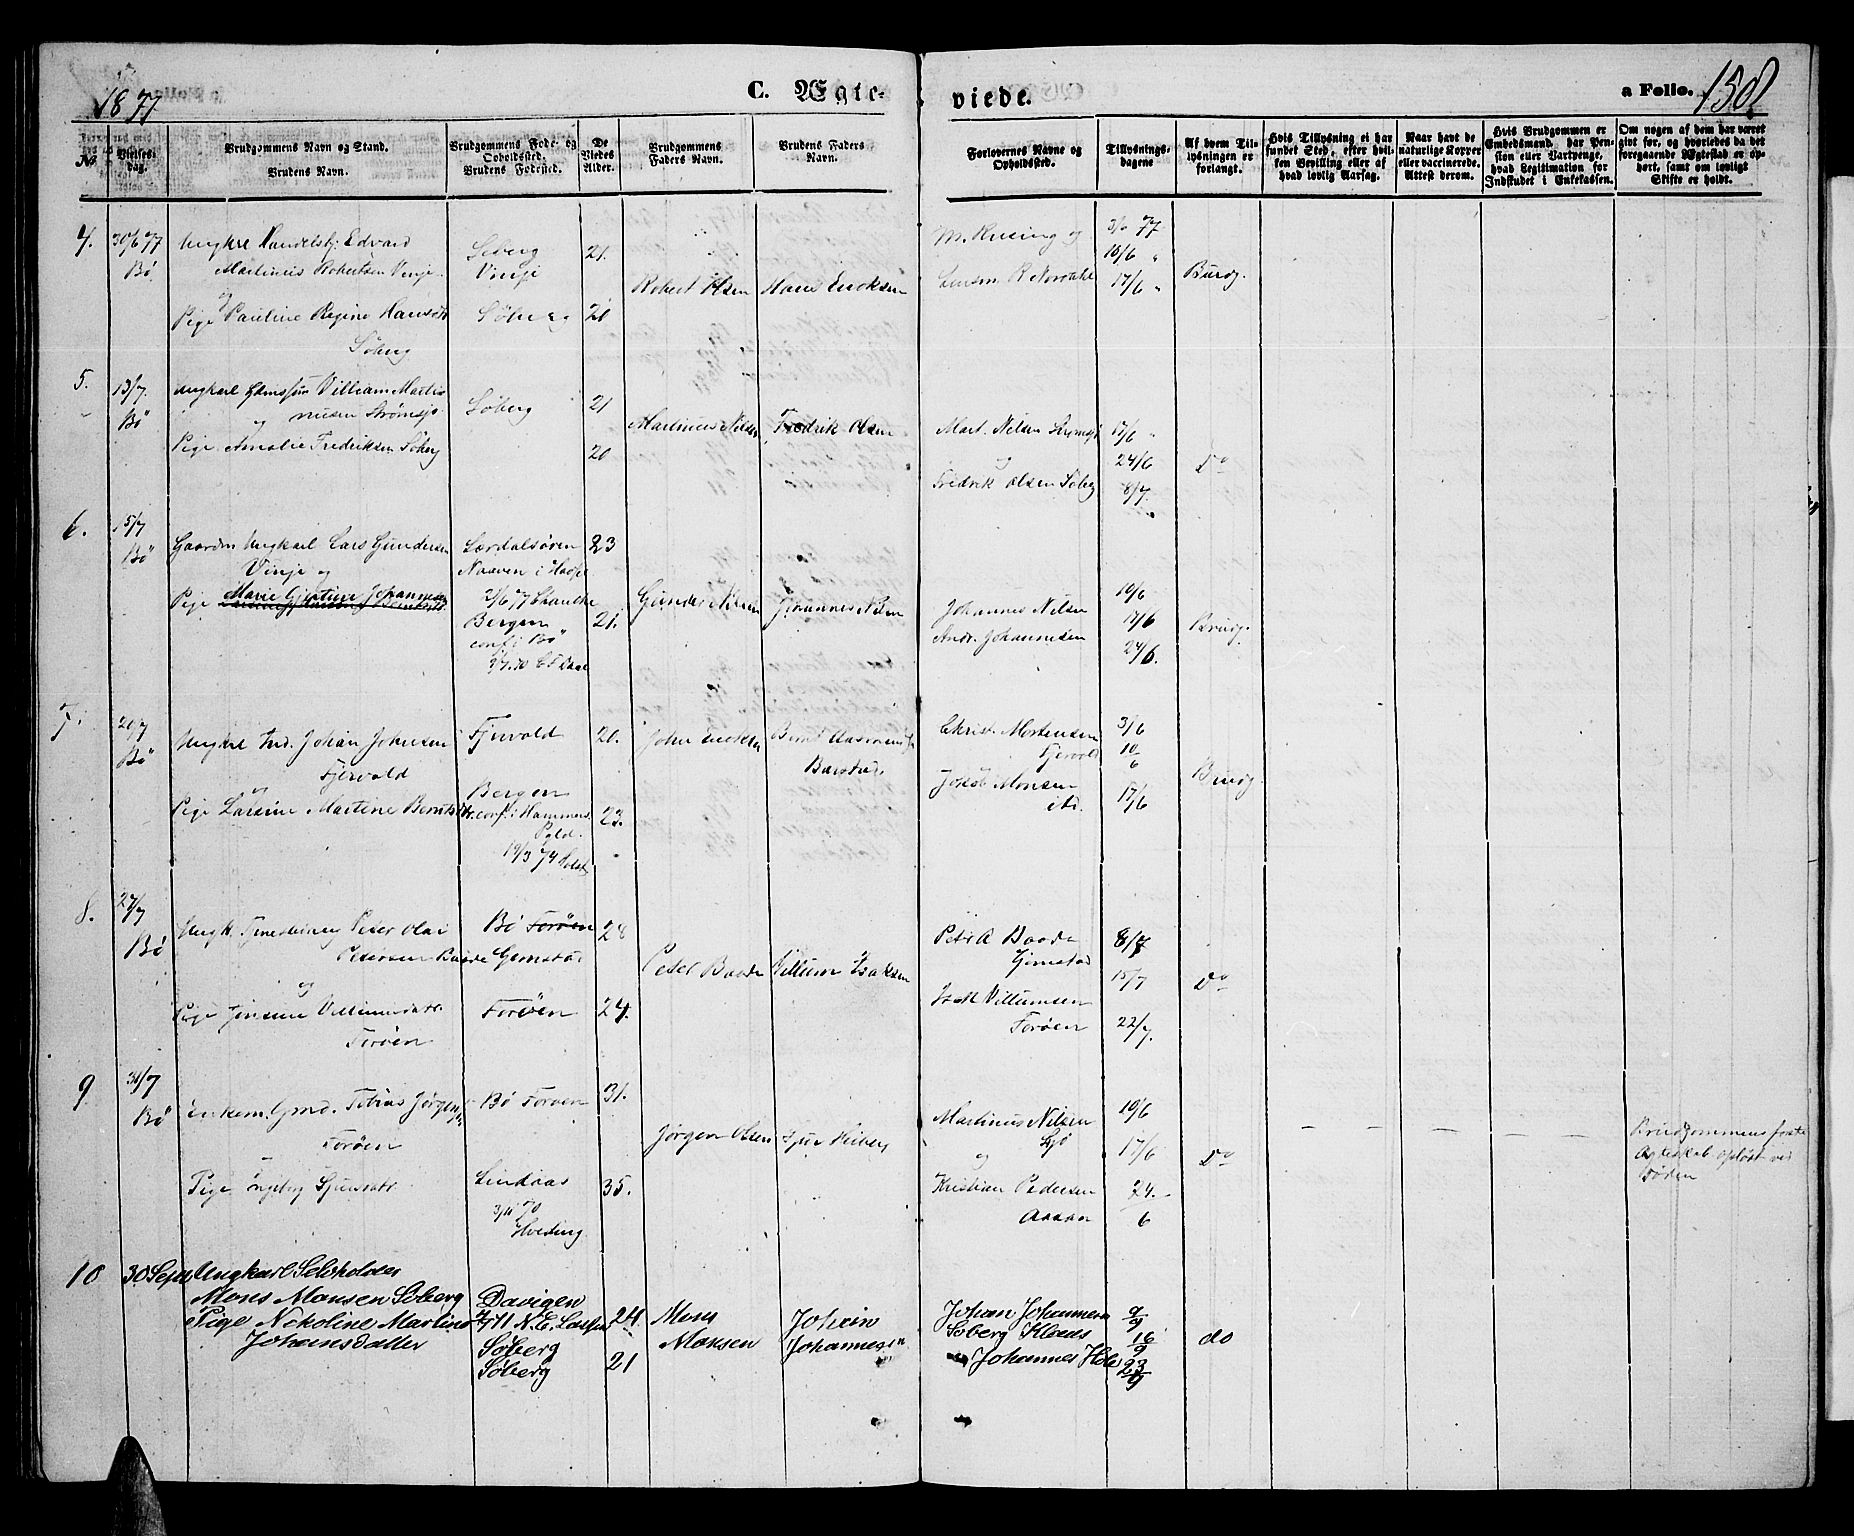 1877
C. Ægte-
viede.
a Folio. 150
No.
Vielses-
dag.
Brudgommens Navn og Stand.
Brudens Navn.
Brudgommens Føde- og
Opholdssted.
Brudens Fødested.
De
Viedes
Alder.
Brudgommens
Faders Navn.
Brudens Faders
Navn.
Forlovernes Navne og
Opholdssted.
Tillysnings-
dagene
Af hvem Til-
lysningen er
forlangt.
Hvis Tillysning ei har
fundet Sted, efter hvil-
ken Bevilling eller af
hvad lovlig Aarsag.
Naar havt de
naturlige Kopper
eller vaccinerede.
Attest derom.
Hvis Brudgommen er
Embedsmand, har Pen-
sion eller Vartpenge,
hvad Legitimation for
Indskudet i Enkekassen.
Om nogen af dem har været
givt før, og hvorledes da det
foregaaende Ægteskab er op-
hørt, samt om lovligt
Skifte er holdt.
4.
30/6 77
Bø
Ungkrl Handelsbj. Edvard
Martinus Robertsen Vinje
og
Pige Pauline Regine Hansdtr
Søberg
Søberg
Vinje
Søberg
21.
21
Robert Olsen
Hans Ericksen
M. Rusing og
Lensm. R Nordahl
3/6 77
10/6 "
17/6 "
Brudg.
5.
13/7.
Bø
Ungkarl William Marti-
nusen Strømsjø
og
Pige Amalie Fredriksen Søberg
Søberg
21
20
Martinus Nilsen
Fredrik Olsen
Mart. Nilsen Strømsjø
og
Fredrik Olsen Søberg
17/6
24/6
8/7.
Do
6.
15/7
Bø
Gaardm Ungkarl Lars Gundersen
Vinje og
Pige Marie Gjertine Johannesen
Lærdalsøren
Naaven i Hadsel
2/6 77
Bergen
conf. i Bø
23
21.
Gunder Nilsen
Johannes Nilsen
Johannes Nilsen
Andr. Johannesen
10/6
17/6
24/6.
Brudg.
7.
20/7
Bø
Ungkrl Ind. Johan Johnsen
Fjervold
og
Pige Larsine Martine Berntsdtr.
Fjervold
Bergen
conf. i Hammers
Pgld.
19/3 74
20.
23.
John Ericksen
Bernt
Barstad.
Christ. Mortensen
Fjervold
Jakob Monsen
ibd.
3/6
10/6
17/6
Brudg.
8.
27/7
Bø
Ungk. Peter Olai
Petersen Baade
og
Pige Jensine Villumsdatr.
Forøen
Bø Forøen
Gimstad
Forøen
28
24.
Peter Baade
Villum Isaksen
Petr A Baade
Gimstad
Isak Villumsen
Forøen
8/7
15/7
22/7.
Do
9
31/7
Bø
Enkem. Gmd. Tobias Jørgens.
Forøen
og
Pige Ingeborg Sjursdatr.
Bø Forøen
Lindaas
Hvoslug
31.
35.
Jørgen Olsen
Martinus Nilsen
og
Kristian Pedersen
10/6
17/6
24.
6
Do
– – – –
Brudgommens første
Ægteskab opløst ved
Døden
10
30 Sept
Ungkarl Selvholder
Mons Monsen Søberg
Pige Nikoline Martine
Johansdatter
Davigen
N. E. Larsen
Søberg
Søberg
24.
21
Mons
Monsen
Johan
Johannesen
Johan Johannesen
Søberg Klaus
Johannes Hole
9/9
16/9
23/9
do